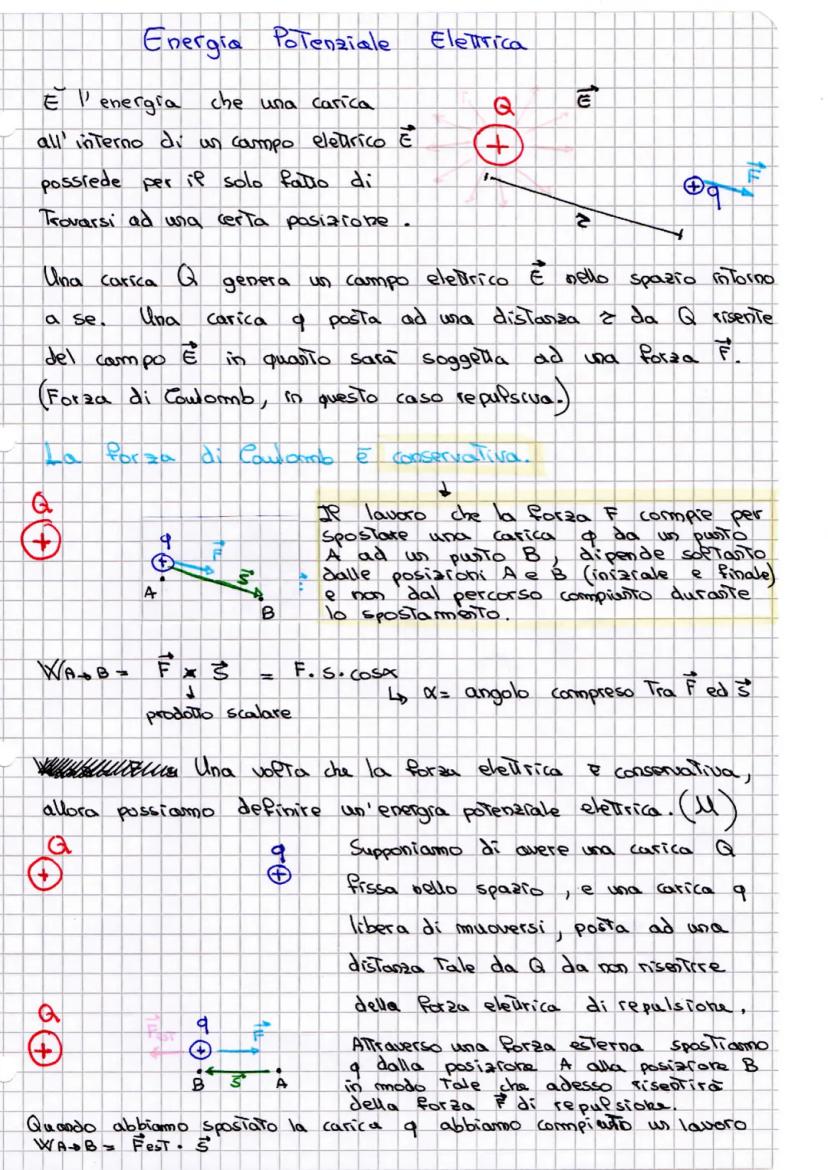 Energia Potenziale Elettrica
È l'energia che una carica
all'interno di un campo elettrico E
possiede per il solo fatto di
Trovarsi ad una certa posizione.
Q
E
+
+
q
F
r
Una carica Q genera un campo elettrico E nello spazio intorno
a se. Una carica q posta ad una distanza r da Q risente
del campo E in quanto sarà soggetta ad una forza F.
(Forza di Coulomb, in questo caso repulsiva.)
La forza di Coulomb è conservativa.
Q
+
q
+
F
S
A
B
Il lavoro che la forza F compie per
spostare una carica q da un punto
A ad un punto B, dipende soltanto
dalle posizioni A e B (iniziale e finale)
e non dal percorso compiunto durante
lo spostamento.
WA→B = F × S = F. s. cosα
↳ α = angolo compreso Tra F ed S
prodotto scalare
Una volta che la forza elettrica è conservativa,
allora possiamo definire un'energia potenziale elettrica. (U)
Q
+
q
+
Supponiamo di avere una carica Q
fissa nello spazio, e una carica q
libera di muoversi, posta ad una
distanza Tale da Q da non risentire
della forza elettrica di repulsione.
Q
+
Fest
q
+
F
B
S
A
Attraverso una forza esterna spostiamo
q dalla posizione A alla posizione B
in modo Tale che adesso risentirà
della forza F di repulsione.
Quando abbiamo spostato la carica q abbiamo compiuto un lavoro
WA→B = Fest · S